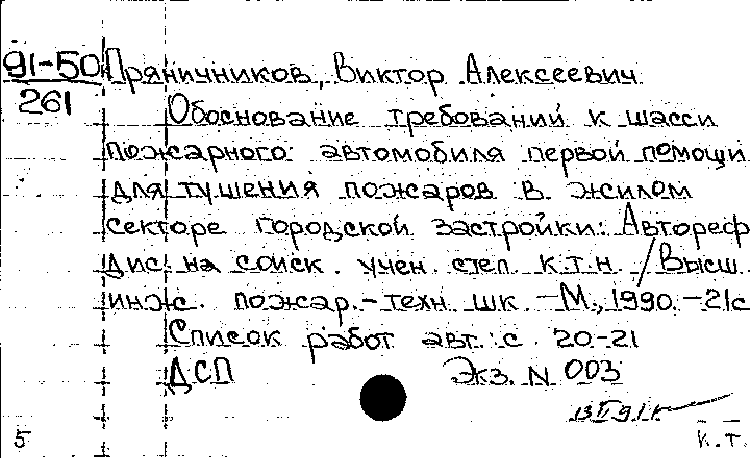 91-50 Пряничников, Виктор Алексеевич
261
Обоснование требований к шасси
пожарного автомобиля первой помощи
для тушения пожаров в жилом
секторе городской застройки: Автореф
дис. на соиск. учен. степ. к.т.н. / Высш.
инж. пожар.-техн. шк. - М., 1990. - 21с
Список работ авт.: с. 20-21
ДСП Экз. N 003
5 К.Т.